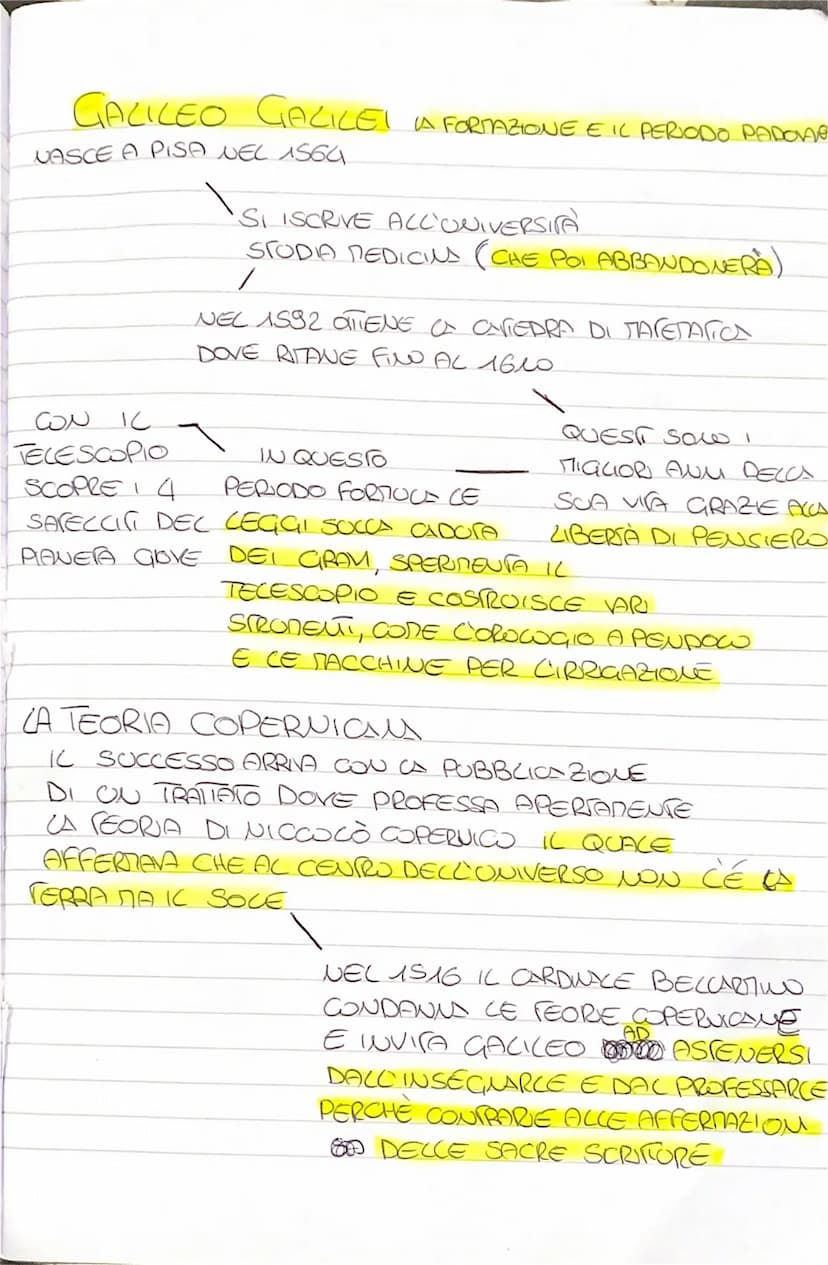 GALILEO GALILEI LA FORMAZIONE E IL PERIODO PADOVANO
NASCE A PISA NEL 1564
SI ISCRIVE ALL'UNIVERSITÀ
STUDIA MEDICINA (CHE POI ABBANDONERÀ)
NEL 1592 OTTIENE LA CATTEDRA DI MATEMATICA
DOVE RIMANE FINO AL 1610
QUESTI SONO I
MIGLIORI ANNI DELLA
SUA VITA GRAZIE ALLA
LIBERTÀ DI PENSIERO
IN QUESTO
PERIODO FORMULA LE
LEGGI SULLA CADUTA
DEI GRAVI, SPERIMENTA IL
TELESCOPIO E COSTRUISCE VARI
STRUMENTI, COME L'OROLOGIO A PENDOLO
E LE MACCHINE PER L'IRRIGAZIONE
CON IL
TELESCOPIO
SCOPRE I 4
SATELLITI DEL
PIANETA GIOVE
LA TEORIA COPERNICANA
IL SUCCESSO ARRIVA CON LA PUBBLICAZIONE
DI UN TRATTATO DOVE PROFESSA APERTAMENTE
LA TEORIA DI NICCOLÒ COPERNICO IL QUALE
AFFERMAVA CHE AL CENTRO DELL'UNIVERSO NON C'È LA
TERRA MA IL SOLE
NEL 1516 IL CARDINALE BELLARMINO
CONDANNA LE TEORIE COPERNICANE
E INVITA GALILEO AD ASTENERSI
DALL'INSEGNARLE E DAL PROFESSARLE
PERCHÈ CONTRARIE ALLE AFFERMAZIONI
DELLE SACRE SCRITTURE